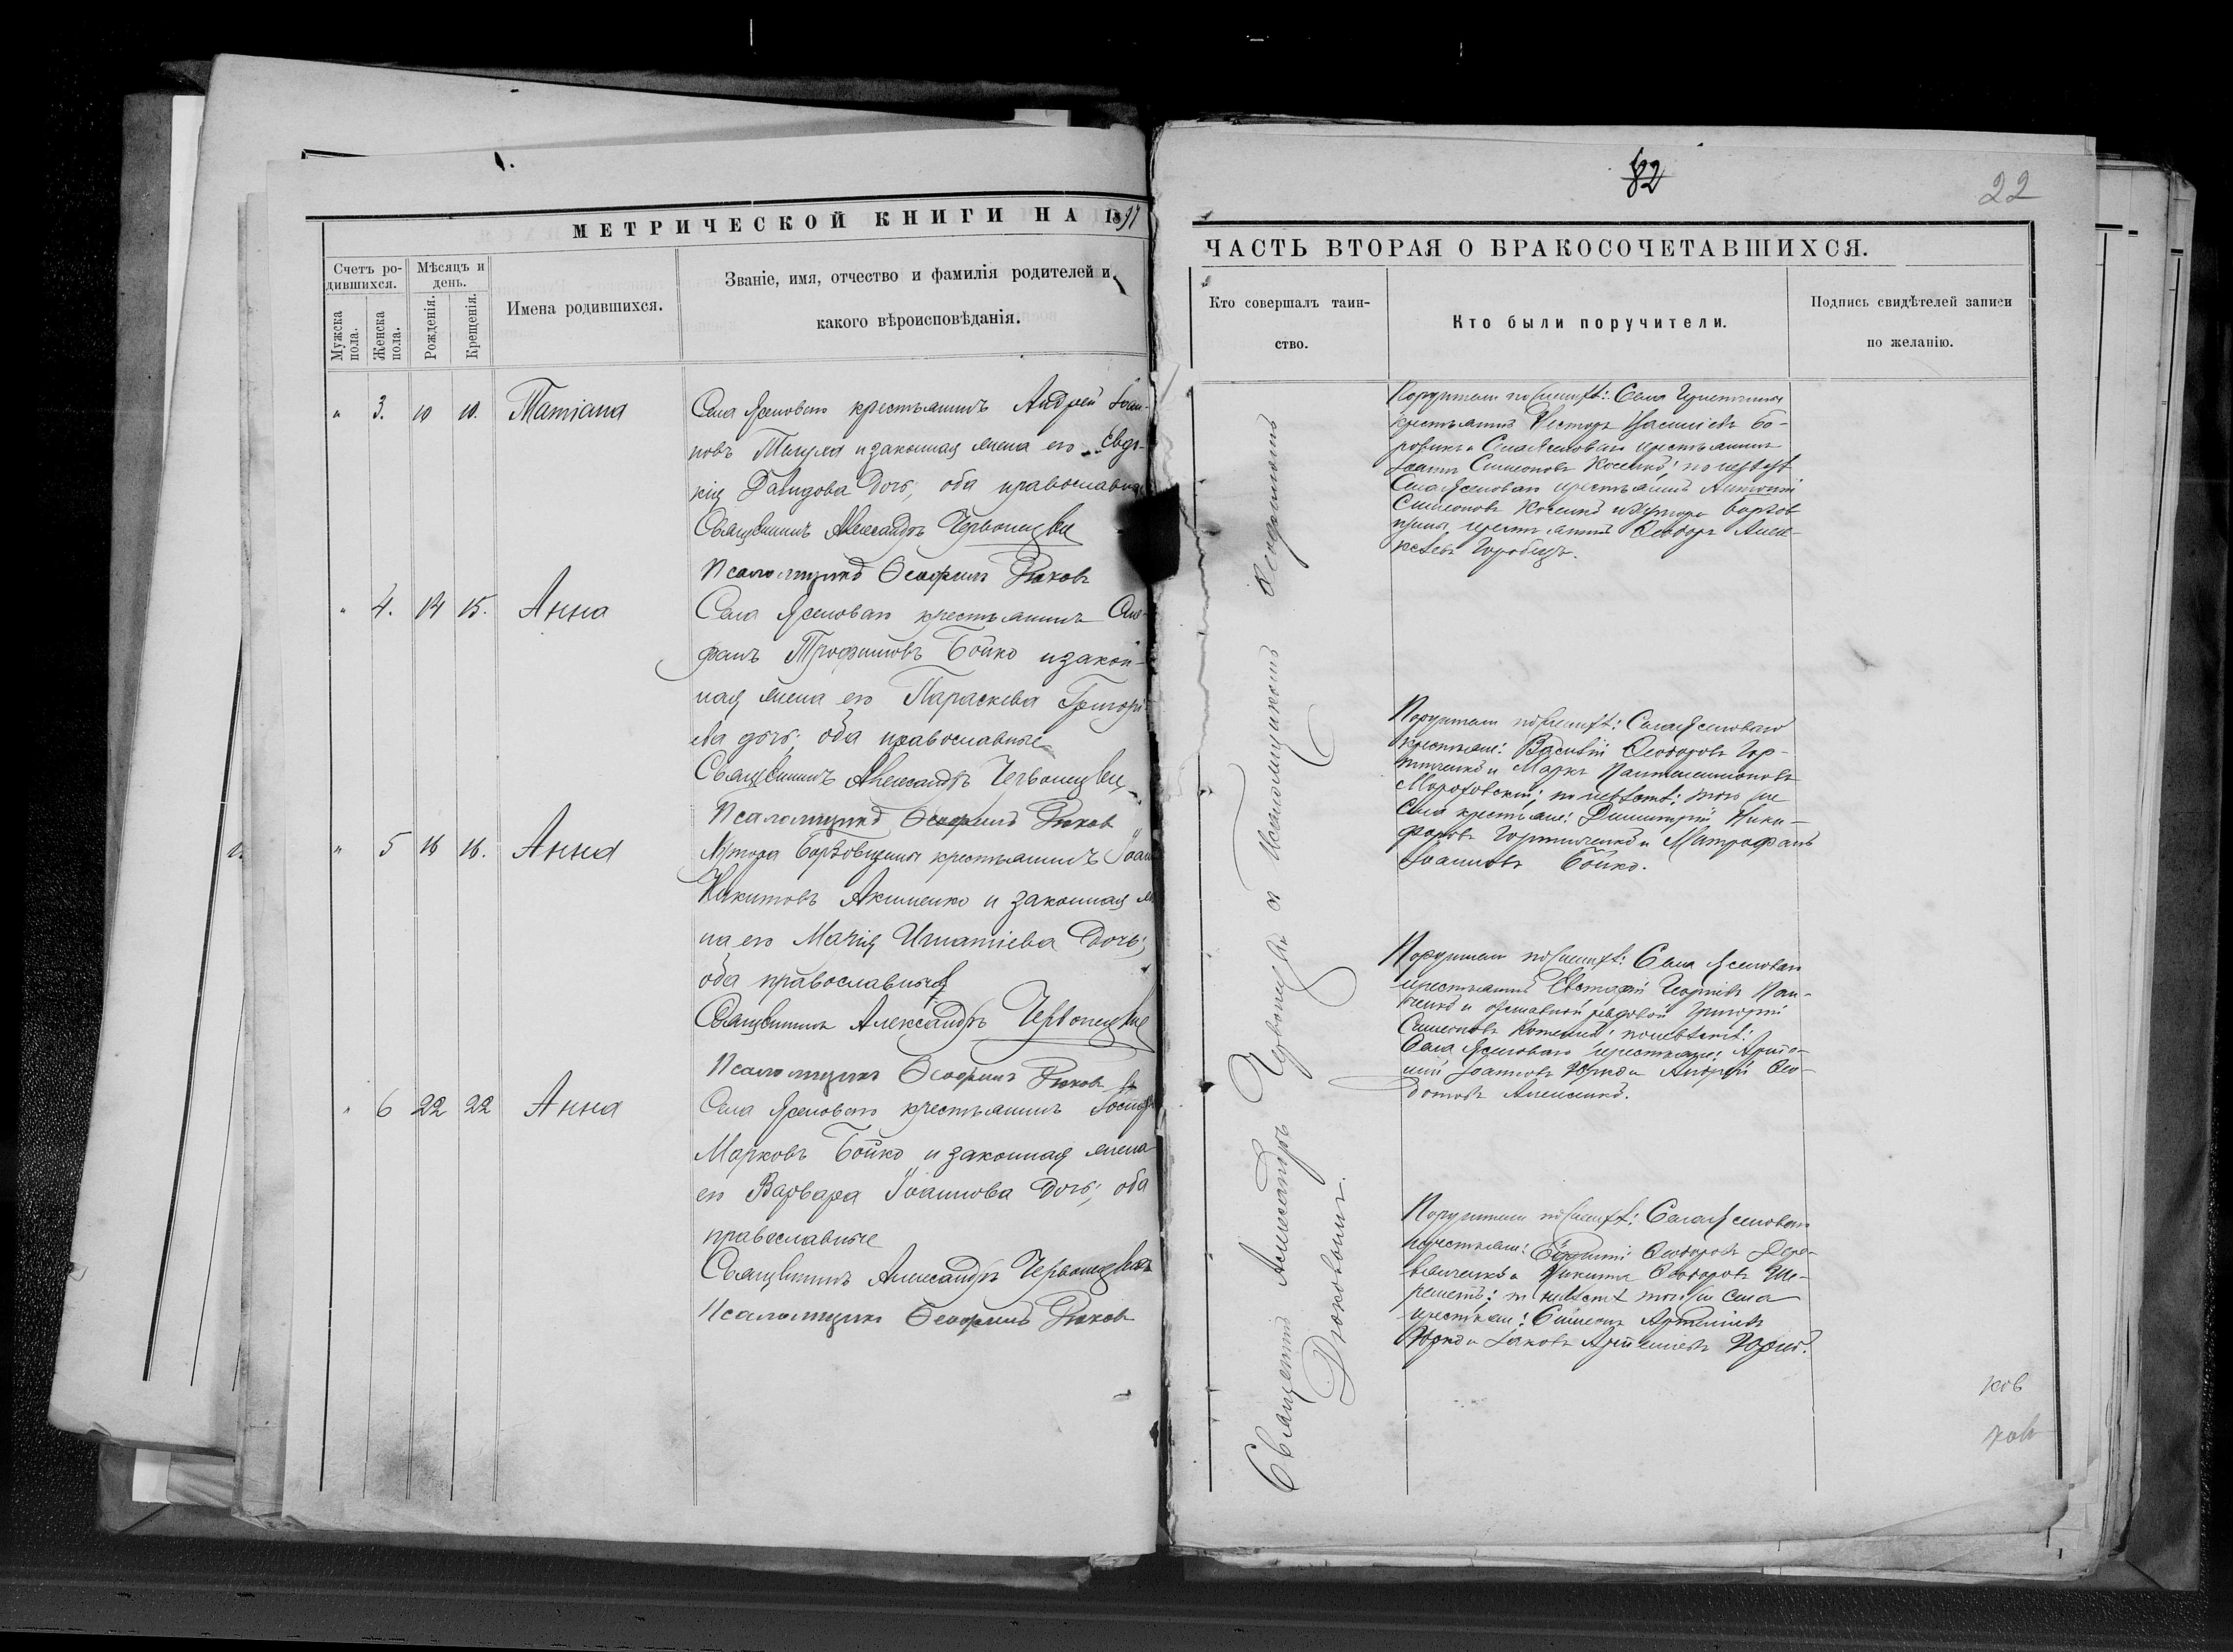 МЕТРИЧЕСКОЙ КНИГИ НА 1897
Счетъ ро-
дившихся.
Мѣсяцъ и
день.
Мужска
пола.
Женска
пола.
Рожденія.
Крещенія.
Имена родившихся.
Званіе, имя, отчество и фамилія родителей и
какого вѣроисповѣданія.
" 3. 10 10. Татіана
Села Ясеноваго крестьянинъ Андрей Іоан-
новъ и законная жена его Евдо-
кія Давидова дочь, оба православные
Священникъ Александръ Червонецкій
Псаломщикъ Ѳеофилъ
" 4. 14 15. Анна
Села Ясеноваго крестьянинъ Сте-
фанъ Трофимовъ Бойко и закон-
ная жена его Параскева Григорі-
ева дочь; оба православные
Священникъ Александръ Червонецкій
Псаломщикъ Ѳеофилъ
" 5 16 16. Анна
Хутора крестьянинъ Іоаннъ
Никитовъ Акименко и законная же-
на его Марія Игнатіева дочь;
оба православные
Священникъ Александръ Червонецкій
Псаломщикъ Ѳеофилъ
" 6 22 22 Анна
Села Ясеноваго крестьянинъ Іосифъ
Марковъ Бойко и законная жена
его Варвара Іоаннова дочь; оба
православные
Священникъ Александръ Червонецкій
Псаломщикъ Ѳеофилъ
82
22
ЧАСТЬ ВТОРАЯ О БРАКОСОЧЕТАВШИХСЯ.
Кто совершалъ таин-
ство.
Кто были поручители.
Подпись свидѣтелей записи
по желанію.
Священникъ Александръ Червонецкій съ псаломщикомъ
Поручители по женихѣ: Села
крестьянинъ Несторъ Василіевъ Бо-
Села Ясеноваго крестьянинъ
Іоаннъ Симеоновъ по невѣстѣ
Села Ясеноваго крестьянинъ Антоній
Симеоновъ и хутора
крестьянинъ Ѳеодоръ Алек-
сѣевъ Горобецъ.
Поручители по женихѣ: Села Ясеноваго
крестьяне: Василій Ѳеодоровъ Гор-
тиченко и Маркъ Пантелеимоновъ
по невѣстѣ: того же
села крестьяне: Димитрій Ники-
форовъ Гортиченко и Митрофанъ
Іоанновъ Бойко.
Поручители по женихѣ: Села Ясеноваго
крестьянинъ Евстафій Георгіевъ Пан-
ченко и отставной рядовой Григорій
Симеоновъ по невѣстѣ:
Села Ясеноваго крестьяне:
Іоанновъ Юрко и Андрей Ѳео-
дотовъ
Поручители по женихѣ: Села Ясеноваго
крестьяне: Ѳеодоровъ Дере-
Никита Ѳеодоровъ Ше-
реметъ; по невѣстѣ того же села
крестьяне: Симеонъ Артеміевъ
Юрко и Іаковъ Артеміевъ Юрко.
ков